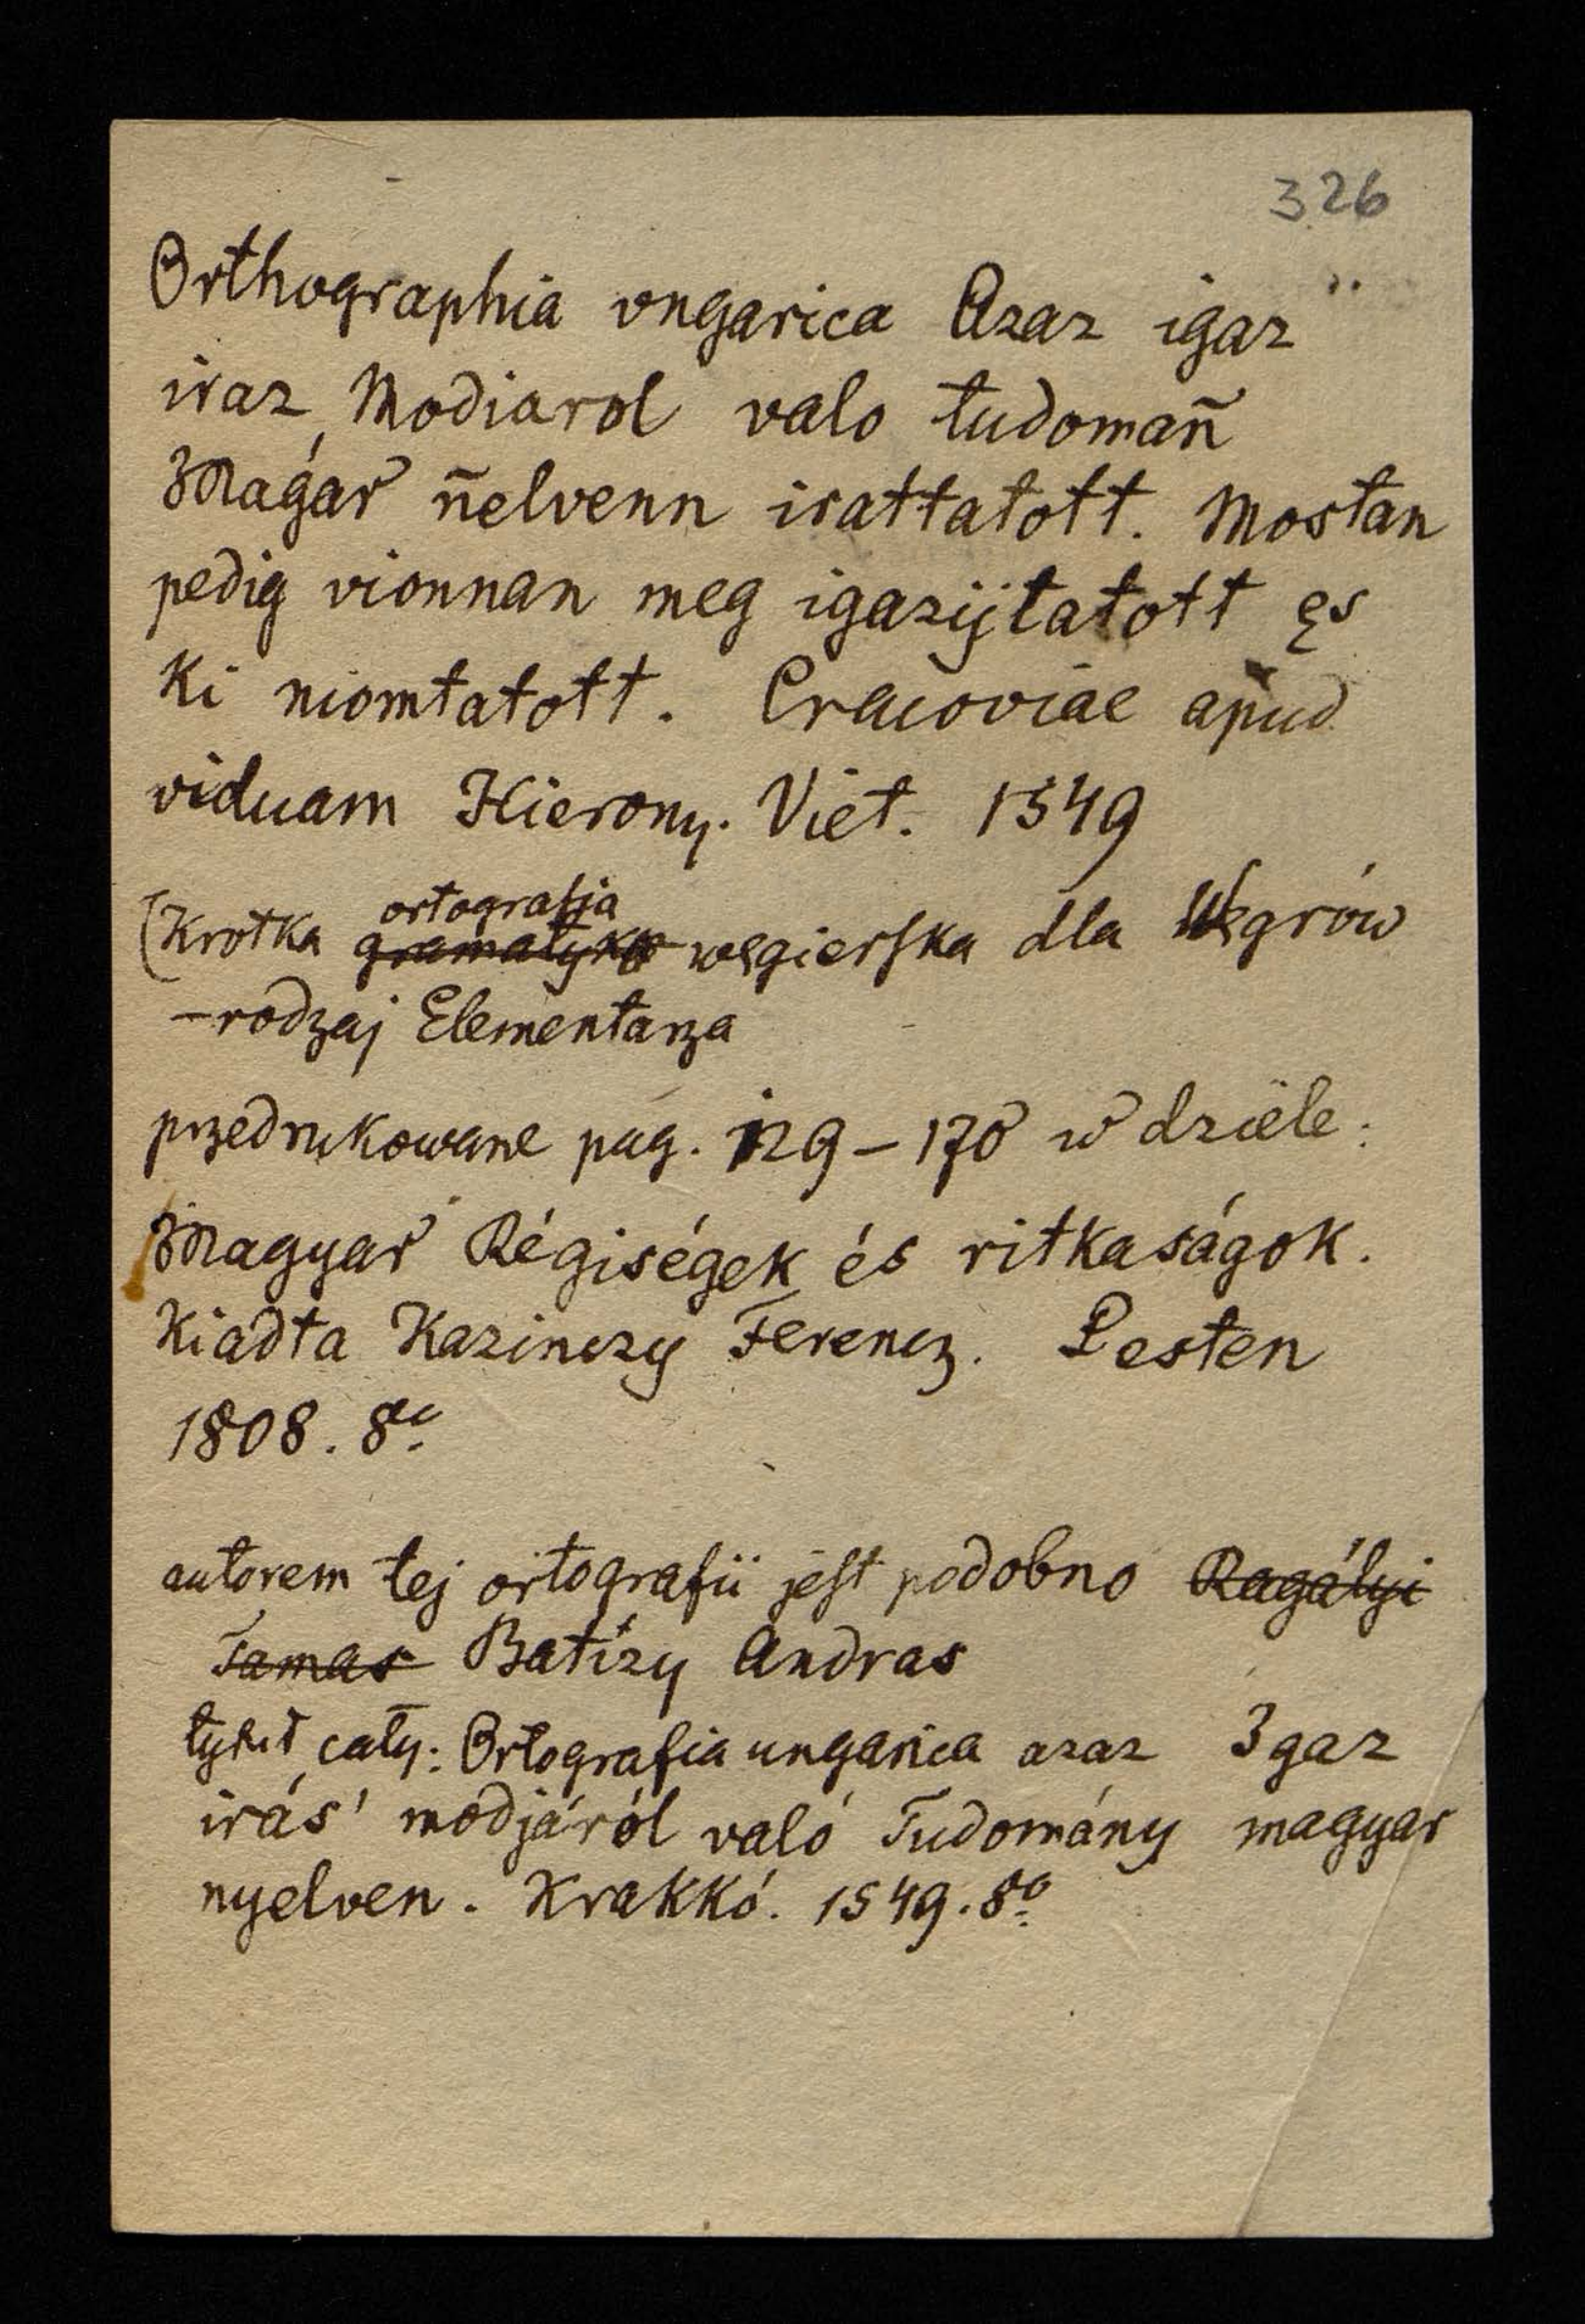 326
Orthographia vngarica Azaz igaz
iraz Modiarol valo tudomañ
Maǵar ñelvenn irattatott. Mostan
pedig vionnan meg igazijtatott ęs
ki niomtatott. Cracoviae apud
viduam Hierony. Viet. 1549
ortografia
(Krotka gramatyka węgierska dla Węgrów
– rodzaj Elementarza
przedrukowane pag. 129 – 170 w dziele:
Magyar Régiségek és ritkaságok.
Kiadta Kazinczy Ferencz. Pesten
1808. 8o
autorem tej ortografii jest podobno Ragályi
Tamas Batizy Andras
tytuł cały: Ortografia ungarica azaz Igaz
irás' modjáról való Tudomány magyar
nyelven. Krakkó. 1549. 8o